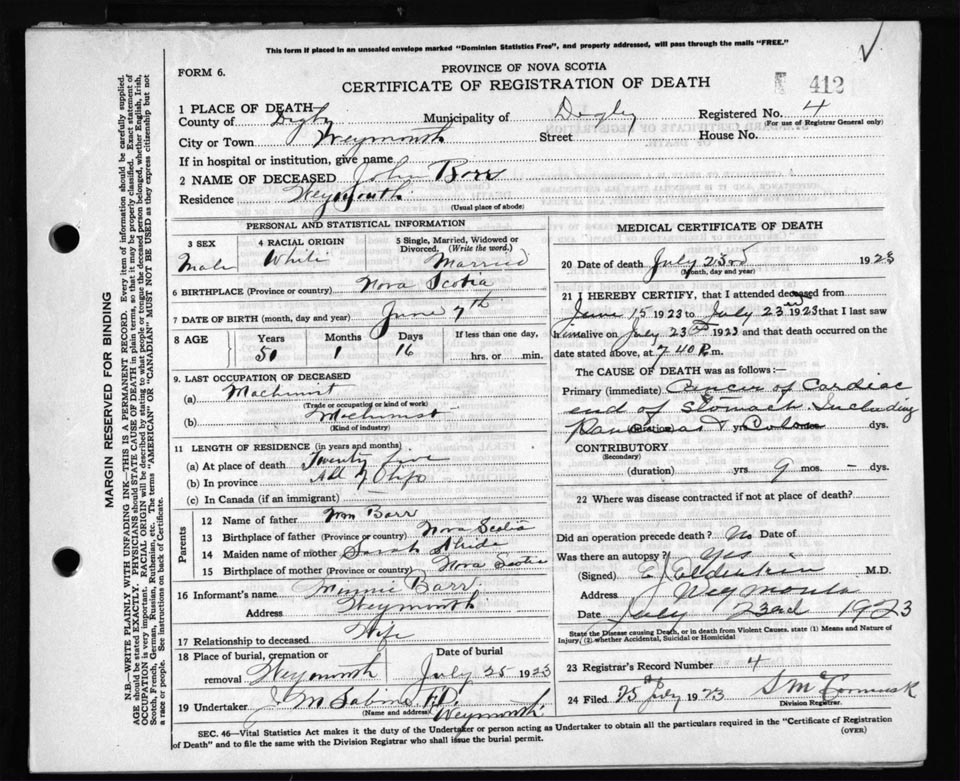 This form if placed in an unsealed envelope marked "Dominion Statistics Free", and properly addressed, will pass through the mails "FREE."
FORM 6.
PROVINCE OF NOVA SCOTIA
CERTIFICATE OF REGISTRATION OF DEATH
412
1 PLACE OF DEATH
County of Digby Municipality of Digby Registered No. 4
(For use of Registrar General only)
City or Town Weymouth Street House No.
If in hospital or institution, give name
2 NAME OF DECEASED John Barr
Residence Weymouth
(Usual place of abode)
PERSONAL AND STATISTICAL INFORMATION
3 SEX 4 RACIAL ORIGIN 5 Single, Married, Widowed or Divorced. (Write the word.)
Male White Married
6 BIRTHPLACE (Province or country) Nova Scotia
7 DATE OF BIRTH (month, day and year) June 7th
8 AGE Years Months Days If less than one day,
50 1 16 hrs. or min.
9. LAST OCCUPATION OF DECEASED
(a) Machinist
(Trade or occupation or kind of work)
(b) Machinist
(Kind of industry)
11 LENGTH OF RESIDENCE (in years and months)
(a) At place of death Twenty five
(b) In province All of Life
(c) In Canada (if an immigrant)
Parents
12 Name of father Wm Barr
13 Birthplace of father (Province or country) Nova Scotia
14 Maiden name of mother Sarah
15 Birthplace of mother (Province or country) Nova Scotia
16 Informant's name Minnie Barr
Address Weymouth
17 Relationship to deceased Wife
18 Place of burial, cremation or removal Weymouth Date of burial July 25 1923
19 Undertaker J M Sabine
(Name and address) Weymouth
MEDICAL CERTIFICATE OF DEATH
20 Date of death July 23rd 1923
(Month, day and year)
21 I HEREBY CERTIFY, that I attended deceased from
June 15 1923 to July 23rd 1923 that I last saw
him alive on July 23rd 1923 and that death occurred on
date stated above, at 7.40 P.m.
The CAUSE OF DEATH was as follows:
Primary (immediate) Cancer of Cardiac
end of Stomach. Including
Pancreas & Colon
(duration) yrs. dys.
CONTRIBUTORY
(Secondary)
(duration) yrs 9 mos. - dys.
22 Where was disease contracted if not at place of death?
Did an operation precede death? No Date of
Was there an autopsy? Yes
(Signed) E J Elderkin M.D.
Address Weymouth
Date July 23rd 1923
State the Disease causing Death, or in death from Violent Causes, state (1) Means and Nature of
Injury, (2) whether Accidental, Suicidal or Homicidal
23 Registrar's Record Number 4
24 Filed 25th July 1923 S McCormick
Division Registrar.
SEC. 46—Vital Statistics Act makes it the duty of the Undertaker or person acting as Undertaker to obtain all the particulars required in the "Certificate of Registration
of Death" and to file the same with the Division Registrar who shall issue the burial permit.
(OVER)
MARGIN RESERVED FOR BINDING
N.B.—WRITE PLAINLY WITH UNFADING INK—THIS IS A PERMANENT RECORD. Every item of information should be carefully supplied.
AGE should be stated EXACTLY. PHYSICIANS should STATE CAUSE OF DEATH in plain terms, so that it may be properly classified. Exact statement of
OCCUPATION is very important. RACIAL ORIGIN will be described by stating to what people or tongue the deceased person belonged, whether English, Irish,
Scotch, French, German, Russian, Ruthenian, etc. The terms "AMERICAN" or "CANADIAN" MUST NOT BE USED as they express citizenship but not
a race or people. See instructions on back of Certificate.